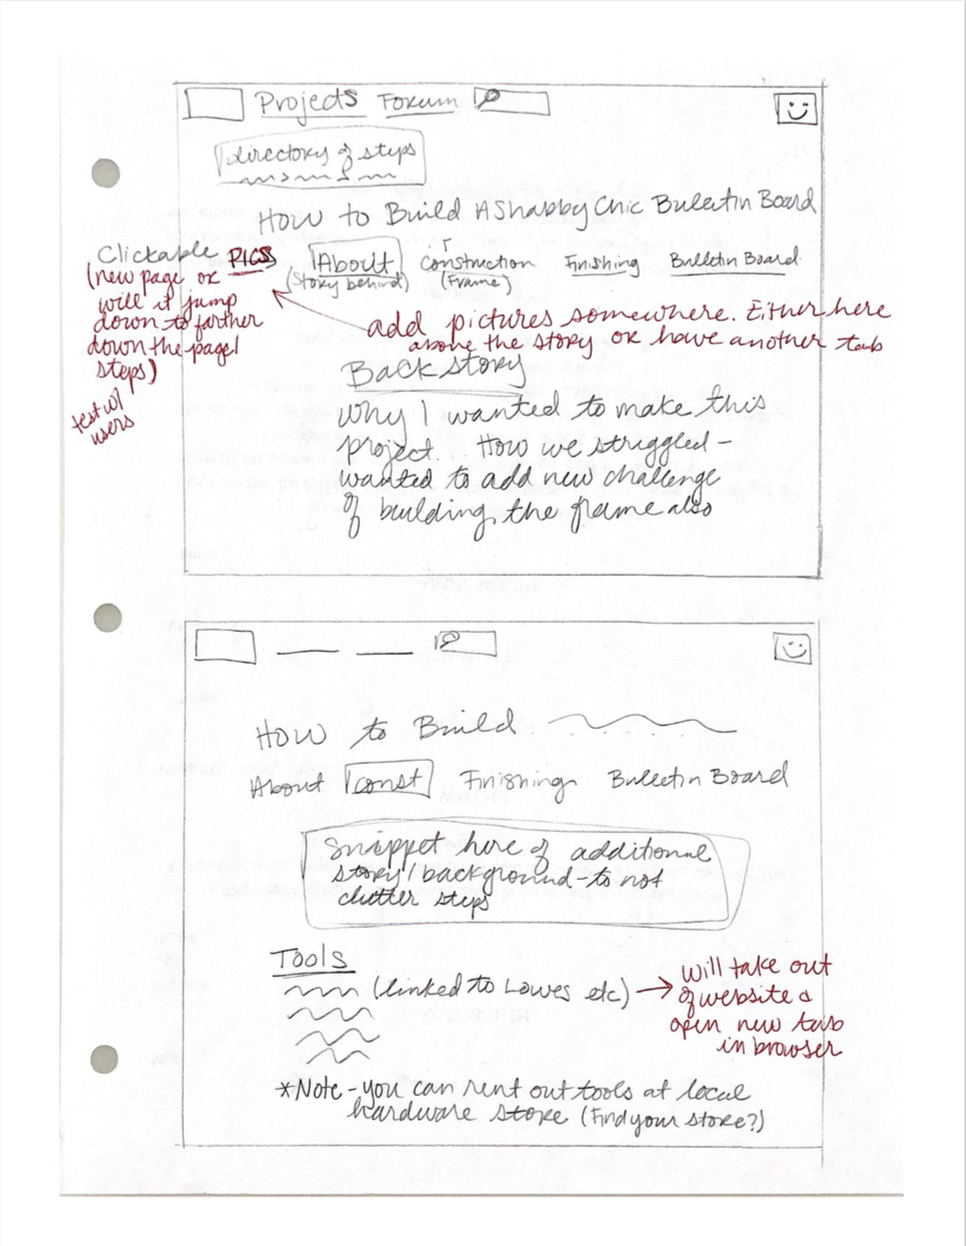 Projects Forum
directory of steps
How to Build A Shabby Chic Bulletin Board
Clickable PICS
(new page or
will it jump
down to farther
down the page/
steps)
test w/
users
About Construction Finishing Bulletin Board
(Story behind) (Frame)
add pictures somewhere. Either here
above the story or have another tab
Backstory
Why I wanted to make this
project. How we struggled -
wanted to add new challenge
of building the frame also
How to Build
About Const Finishing Bulletin Board
Snippet here of additional
story/background - to not
clutter steps
Tools
(linked to Lowes etc)
will take out
of website &
open new tab
in browser
*Note - you can rent out tools at local
hardware store (Find your store?)